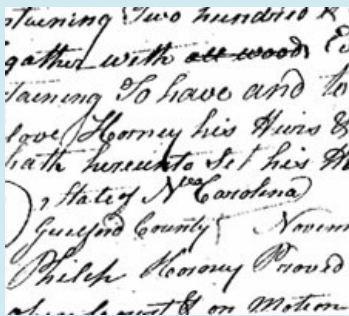 ntaining Two hundred &
gather with all wood
taining To have and to
love Horney his Heirs &
hath hereunto Set his H
State of Nth Carolina
Guilford County Novem
Philip Horney Proved
on Motion